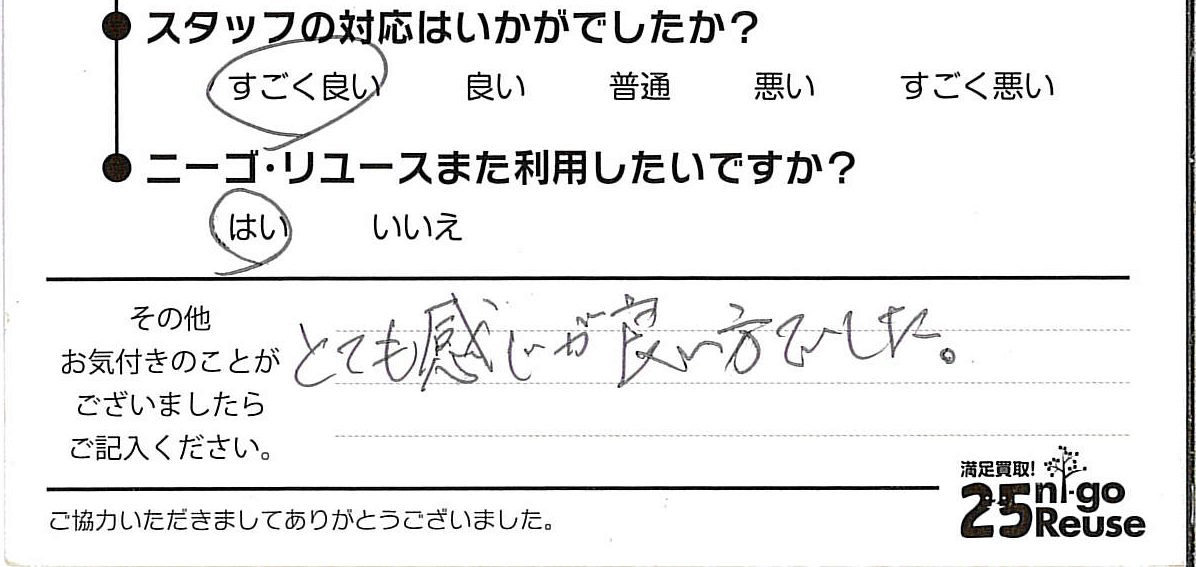 スタッフの対応はいかがでしたか?
すごく良い 良い 普通 悪い すごく悪い
ニーゴ・リユースまた利用したいですか?
はい いいえ
その他
お気付きのことが
ございましたら
ご記入ください。
とても感じが良い方でした。
満足買取!
25 ni-go
Reuse
ご協力いただきましてありがとうございました。